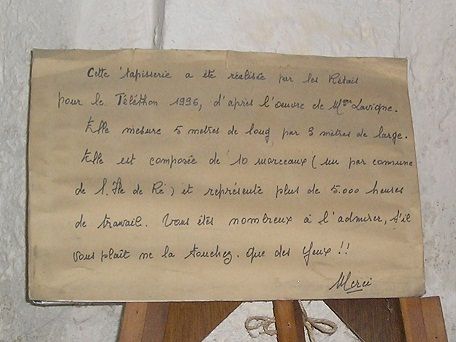 Cette tapisserie a été réalisée par les Rétais
pour le Téléthon 1996, d'après l'œuvre de Mme Lavigne.
Elle mesure 5 mètres de long par 3 mètres de large.
Elle est composée de 10 morceaux (un par commune
de l'Île de Ré) et représente plus de 5.000 heures
de travail. Vous êtes nombreux à l'admirer, S'il
vous plaît ne la touchez. Que des yeux !!
Merci